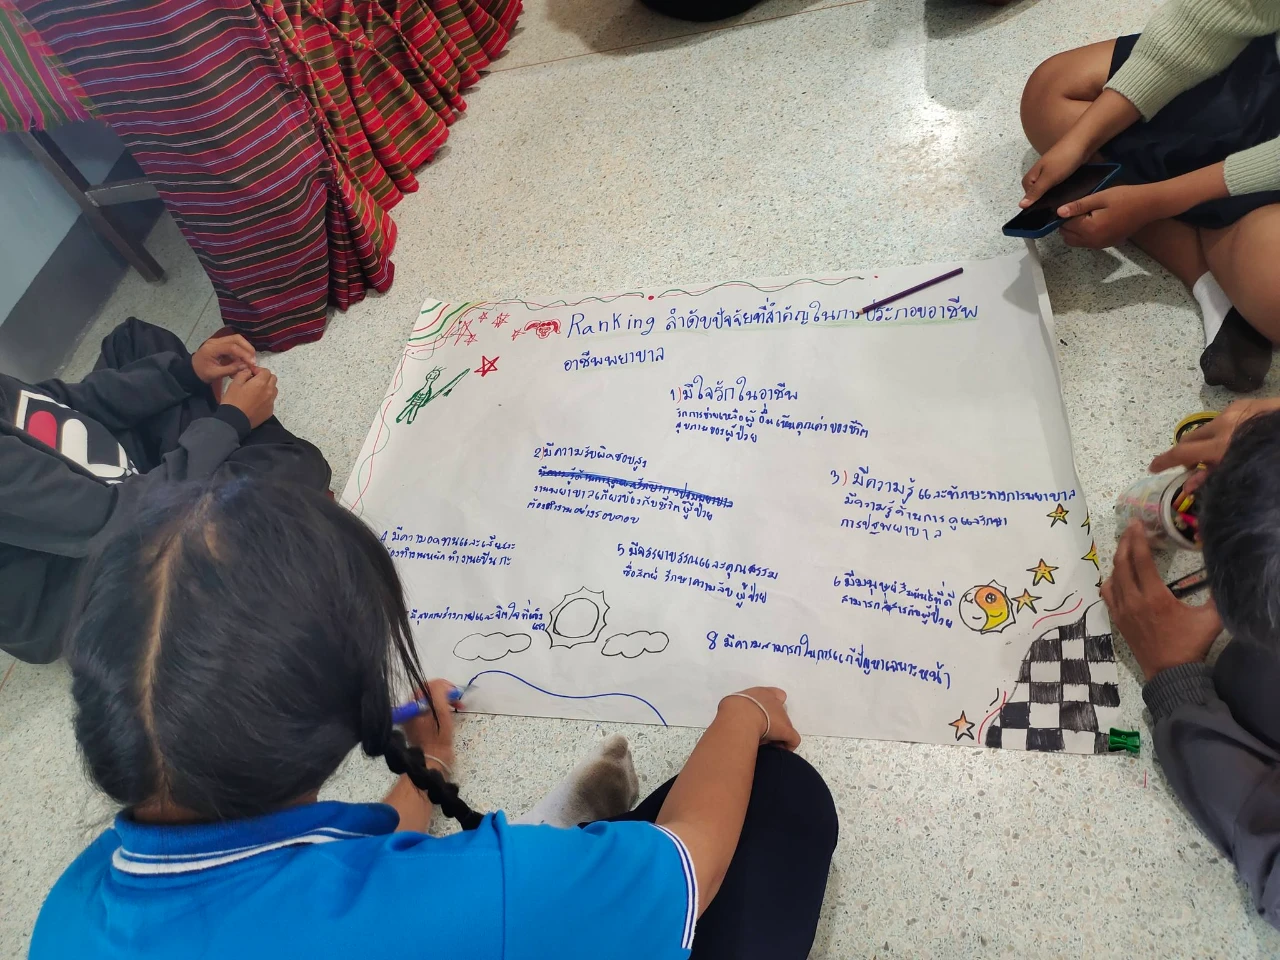 Ranking ลำดับปัจจัยที่สำคัญในการประกอบอาชีพ
อาชีพพยาบาล
1) มีใจรักในอาชีพ
รักการช่วยเหลือผู้อื่น เห็นคุณค่าของชีวิต
สุขภาพของผู้ป่วย
2) มีความรับผิดชอบสูง
งานพยาบาลเกี่ยวข้องกับชีวิตผู้ป่วย
ต้องทำงานอย่างรอบคอบ
3) มีความรู้และทักษะทางการพยาบาล
มีความรู้ด้านการดูแลรักษา
การปฐมพยาบาล
4 มีความอดทนและเสียสละ
ต้องทำงานหนัก ทำงานเป็นกะ
5 มีจรรยาบรรณและคุณธรรม
ซื่อสัตย์ รักษาความลับผู้ป่วย
6 มีมนุษย์สัมพันธ์ที่ดี
สามารถสื่อสารกับผู้ป่วย
มีสุขภาพร่างกายและจิตใจที่แข็ง
แรง
8 มีความสามารถในการแก้ปัญหาเฉพาะหน้า